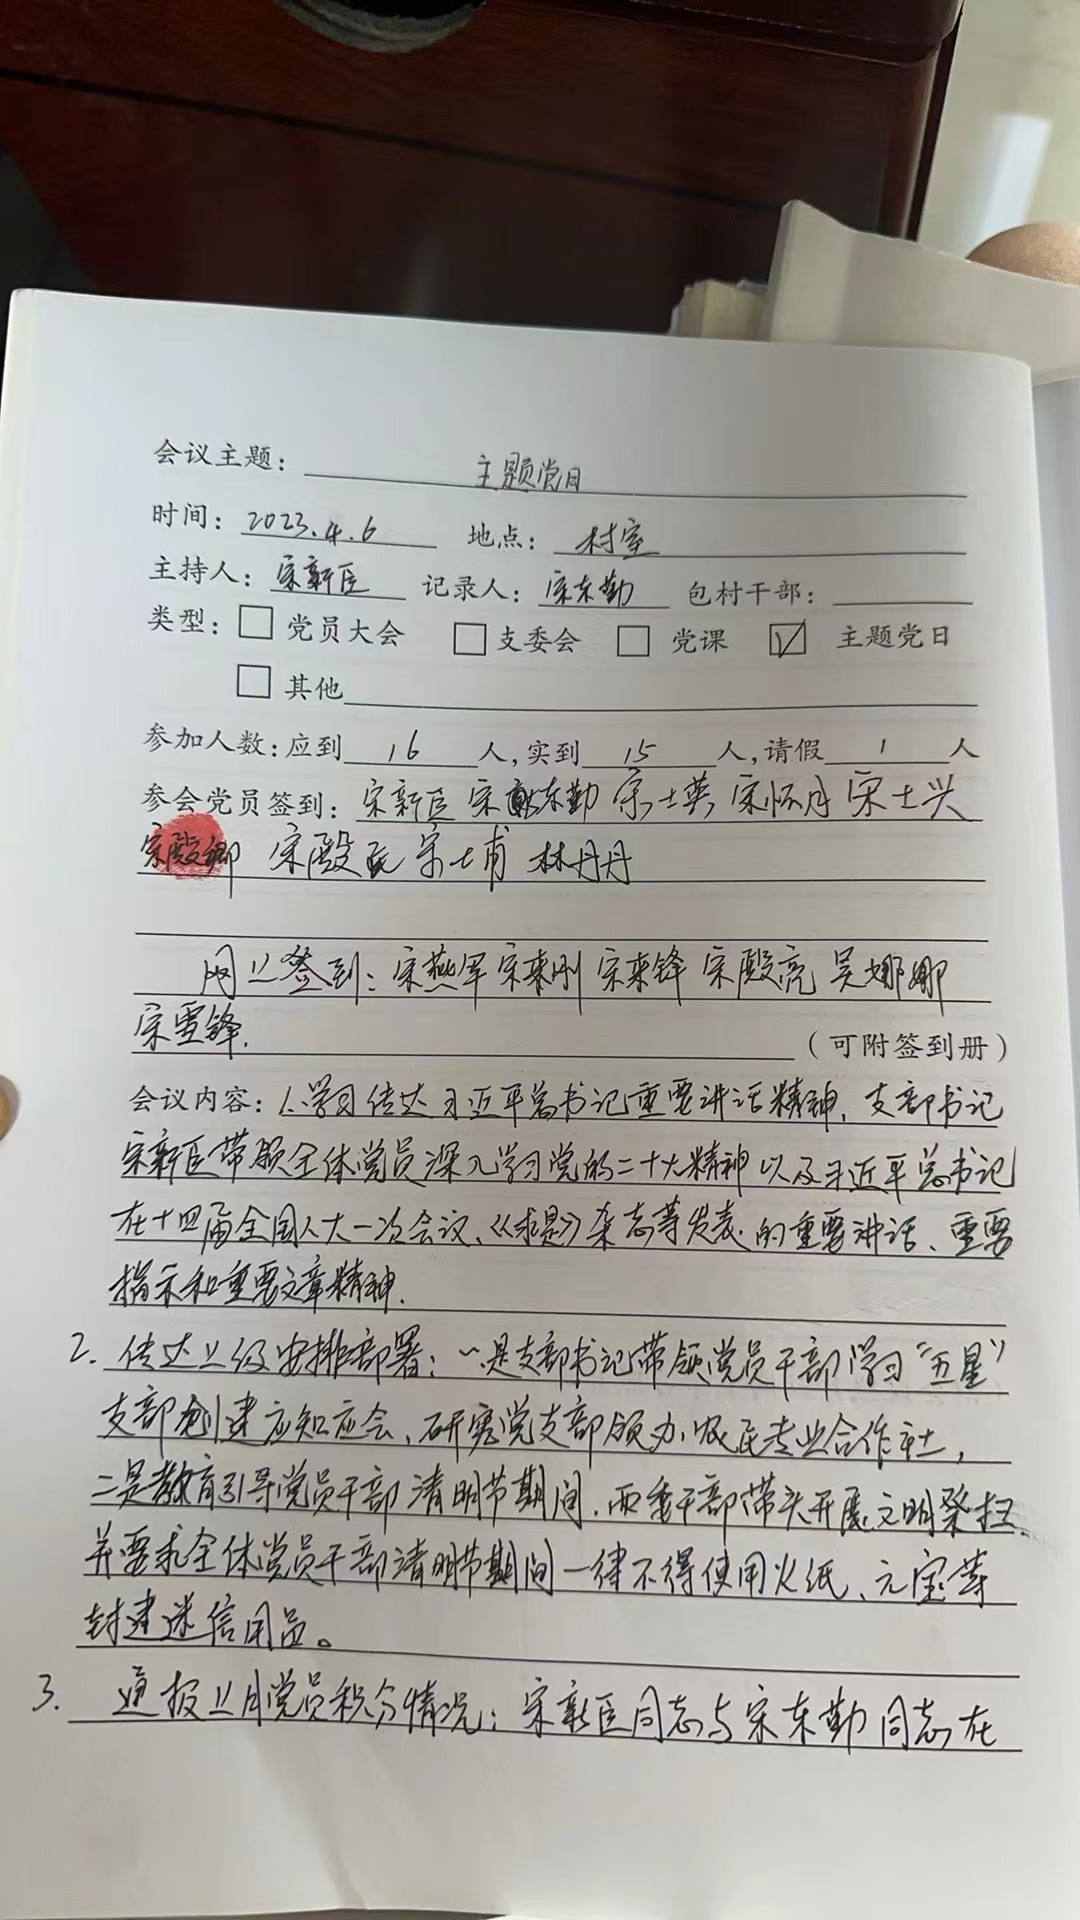 会议主题： 主题党日
时间：2023.4.6 地点：村室
主持人：宋新臣 记录人：宋东勤 包村干部：
类型：□ 党员大会 □ 支委会 □ 党课 ☑ 主题党日
□ 其他
参加人数：应到 16 人，实到 15 人，请假 1 人
参会党员签到：宋新臣 宋东勤 宋士英 宋怀月 宋士兴
宋殿卿 宋殿民 宋士甫 林丹丹
网上签到：宋燕军 宋来刚 宋来锋 宋殿亮 吴娜娜
宋雪锋. （可附签到册）
会议内容：1.学习传达习近平总书记重要讲话精神，支部书记
宋新臣带领全体党员深入学习党的二十大精神以及习近平总书记
在十四届全国人大一次会议、《求是》杂志等发表的重要讲话、重要
指示和重要文章精神.
2. 传达上级安排部署：一是支部书记带领党员干部学习“五星”
支部创建应知应会、研究党支部领办农民专业合作社，
二是教育引导党员干部清明节期间，两委干部带头开展文明祭扫.
并要求全体党员干部清明节期间一律不得使用火纸、元宝等
封建迷信用品。
3. 通报上月党员积分情况：宋新臣同志与宋东勤同志在